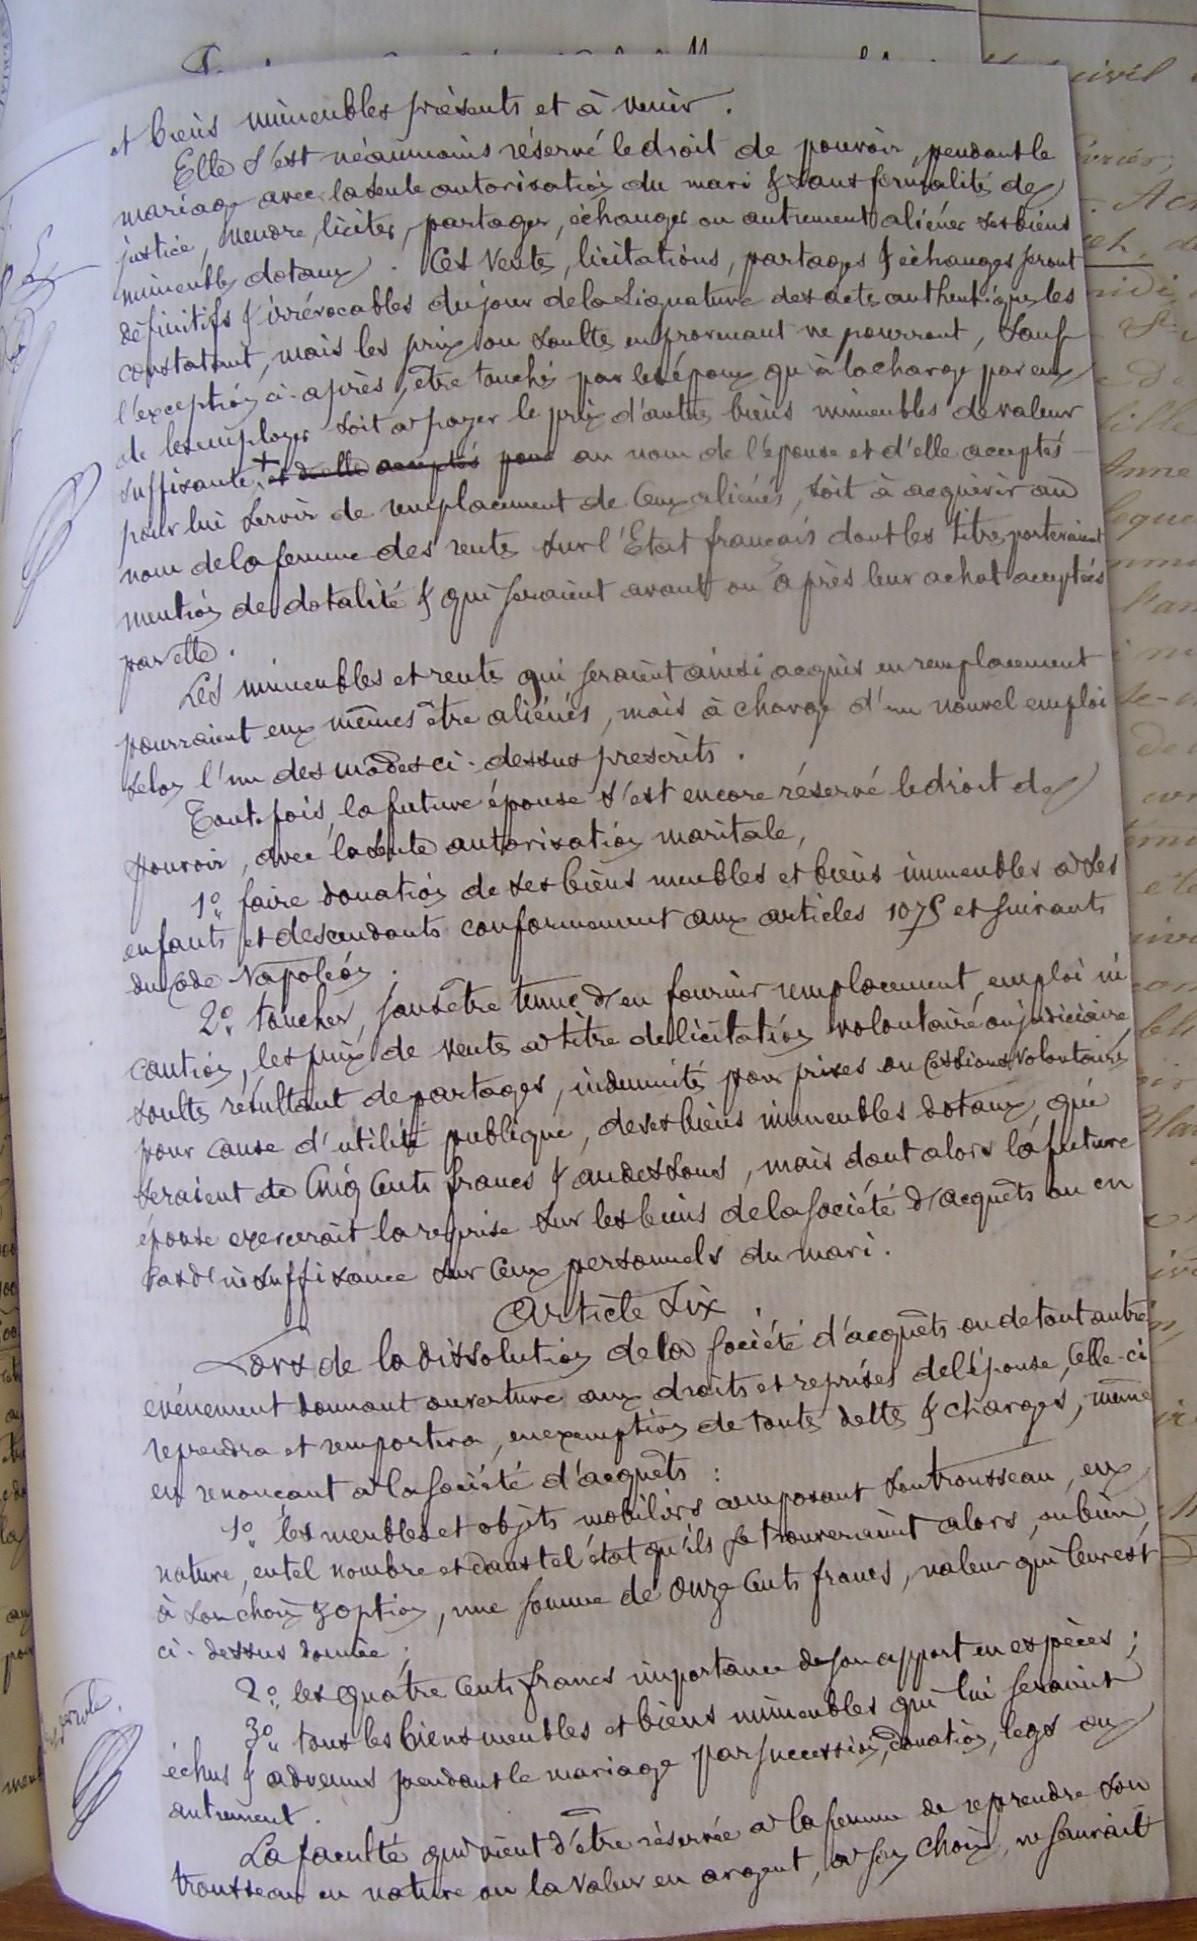 et biens immeubles présents et à venir.
Elle s'est néanmoins réservé le droit de pouvoir, pendant le
mariage avec la seule autorisation du mari & sans formalité de
justice, vendre, liciter, partager, échanger ou autrement aliéner ses biens
immeubles dotaux. Ces ventes, licitations, partages & échanges seront
définitifs & irrévocables du jour de la signature des actes authentiques les
constatant, mais les prix ou soultes en provenant ne pourront, sauf
l'exception ci-après, être touchés par les époux qu'à la charge par eux
de les employer soit à payer le prix d'autres biens immeubles de valeur
suffisante, + et d'elle acceptés pour au nom de l'épouse et d'elle acceptés
pour lui servir de remplacement de ceux aliénés, soit à acquérir au
nom de la femme des rentes sur l'Etat français dont les titres porteraient
mention de dotalité & qui seraient avant ou après leur achat acceptées
par elle.
Les immeubles et rentes qui seraient ainsi acquis en remplacement
pourraient eux mêmes être aliénés, mais à charge d'un nouvel emploi
selon l'un des modes ci-dessus prescrits.
Toutefois, la future épouse s'est encore réservé le droit de
pouvoir, avec la seule autorisation maritale,
1° faire donation de ses biens meubles et biens immeubles à ses
enfants et descendants conformément aux articles 1075 et suivants
du Code Napoléon.
2° toucher, sans être tenue d'en fournir remplacement, emploi ni
caution, les prix de ventes à titre de licitation volontaire ou judiciaire,
soultes résultant de partages, indemnités pour prises ou cessions volontaires
pour cause d'utilité publique, de ses biens immeubles dotaux, qui
seraient de Cinq Cents francs & au dessous, mais dont alors la future
épouse exercerait la reprise sur les biens de la société d'acquêts ou en
cas d'insuffisance sur ceux personnels du mari.
Article Six.
Lors de la dissolution de la société d'acquêts ou de tout autre
evénement donnant ouverture aux droits et reprises de l'épouse, celle-ci
reprendra et remportera, en exemption de toutes dettes & charges, même
en renonçant à la société d'acquêts :
1° les meubles et objets mobiliers composant son trousseau, en
nature, en tel nombre et dans tel état qu'ils se trouveraient alors, ou bien
à son choix & option, une somme de onze Cents francs, valeur qui leur est
ci-dessus donnée ;
2° les quatre Cents francs importance de son apport en espèces ;
3° tous les biens meubles et biens immeubles qui lui seraient
échus & advenus pendant le mariage par succession, donation, legs ou
autrement.
La faculté qui vient d'être réservée à la femme de reprendre son
trousseau en nature ou la valeur en argent, à son choix, ne saurait